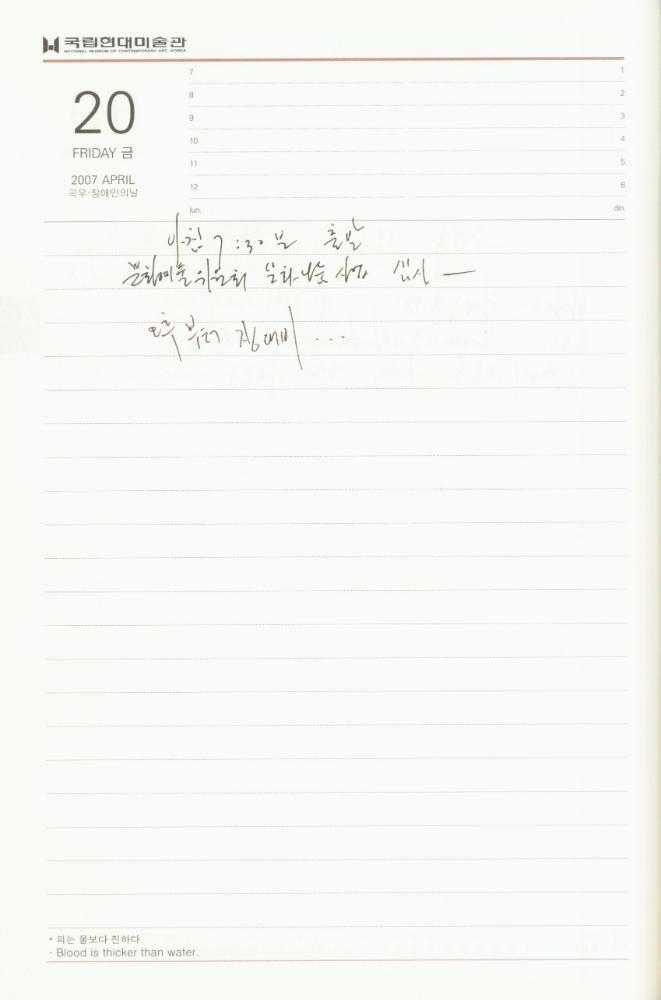 국립현대미술관
NATIONAL MUSEUM OF CONTEMPORARY ART, KOREA
20
FRIDAY 금
2007 APRIL
곡우·장애인의날
7 1
8 2
9 3
10 4
11 5
12 6
lun. din.
아침 7:30분 출발
문화예술위원회 문화나눔 사업 심사 —
오후부터 장대비 ...
* 피는 물보다 진하다.
- Blood is thicker than water.